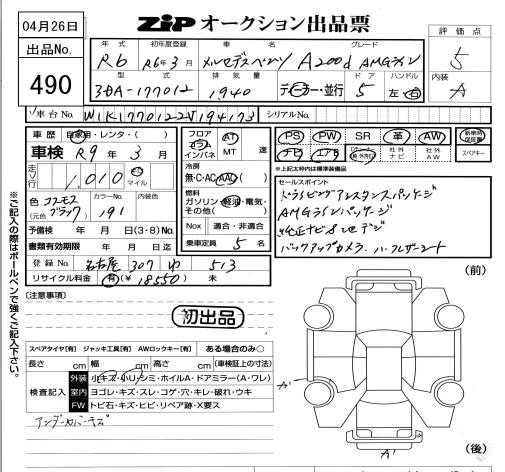 04月26日
ZIP オークション出品票
出品No.
490
年式 初年度登録 車名 グレード
R6 R6年3月 メルセデスベンツ A200d AMGライン
型式 排気量 ドア ハンドル
3DA-177012 1,940 ディーラー・並行 5 左・右
評価点
5
内装
A
車台No. W1K1770122V194173 シリアルNo.
車歴 自家用・レンタ・( )
車検 R9年3月
走行 1,010 km マイル
色 コスモスブラック (元色 ) カラーNo. 191 内装色
予備検 年 月 日(3・8)No.
書類有効期限 年 月 日迄
登録No. 名古屋 307 ゆ 513
リサイクル料金 有(¥ 18550 ) 未
フロア コラム インパネ AT MT 速
冷房
無・C・AC・AAC
燃料
ガソリン・軽油・電気・その他( )
Nox 適合・非適合
乗車定員 5 名
PS PW SR 革 AW 新車時保証書
ナビ エアB 社外ナビ 社外AW スペアキー
※上記太枠内は標準装備品
セールスポイント
ドライビングアシスタンスパッケージ
AMGラインパッケージ
純正ナビ &地デジ
バックアップカメラ. ハーフレザーシート
[注意事項]
初出品
スペアタイヤ[有] ジャッキ工具[有] AWロックキー[有] ある場合のみ○
長さ cm 幅 cm 高さ cm (車検証上の寸法)
検査記入
外装 小キズ・小U・シミ・ホイルA・ドアミラー(A・ワレ)
室内 ヨゴレ・キズ・スレ・コゲ・穴・キレ・破れ・ウキ
FW トビ石・キズ・ヒビ・リペア跡・X要ス
アンダーカバーキズ
(前)
A'
A'
(後)
※ご記入の際はボールペンで強くご記入下さい。